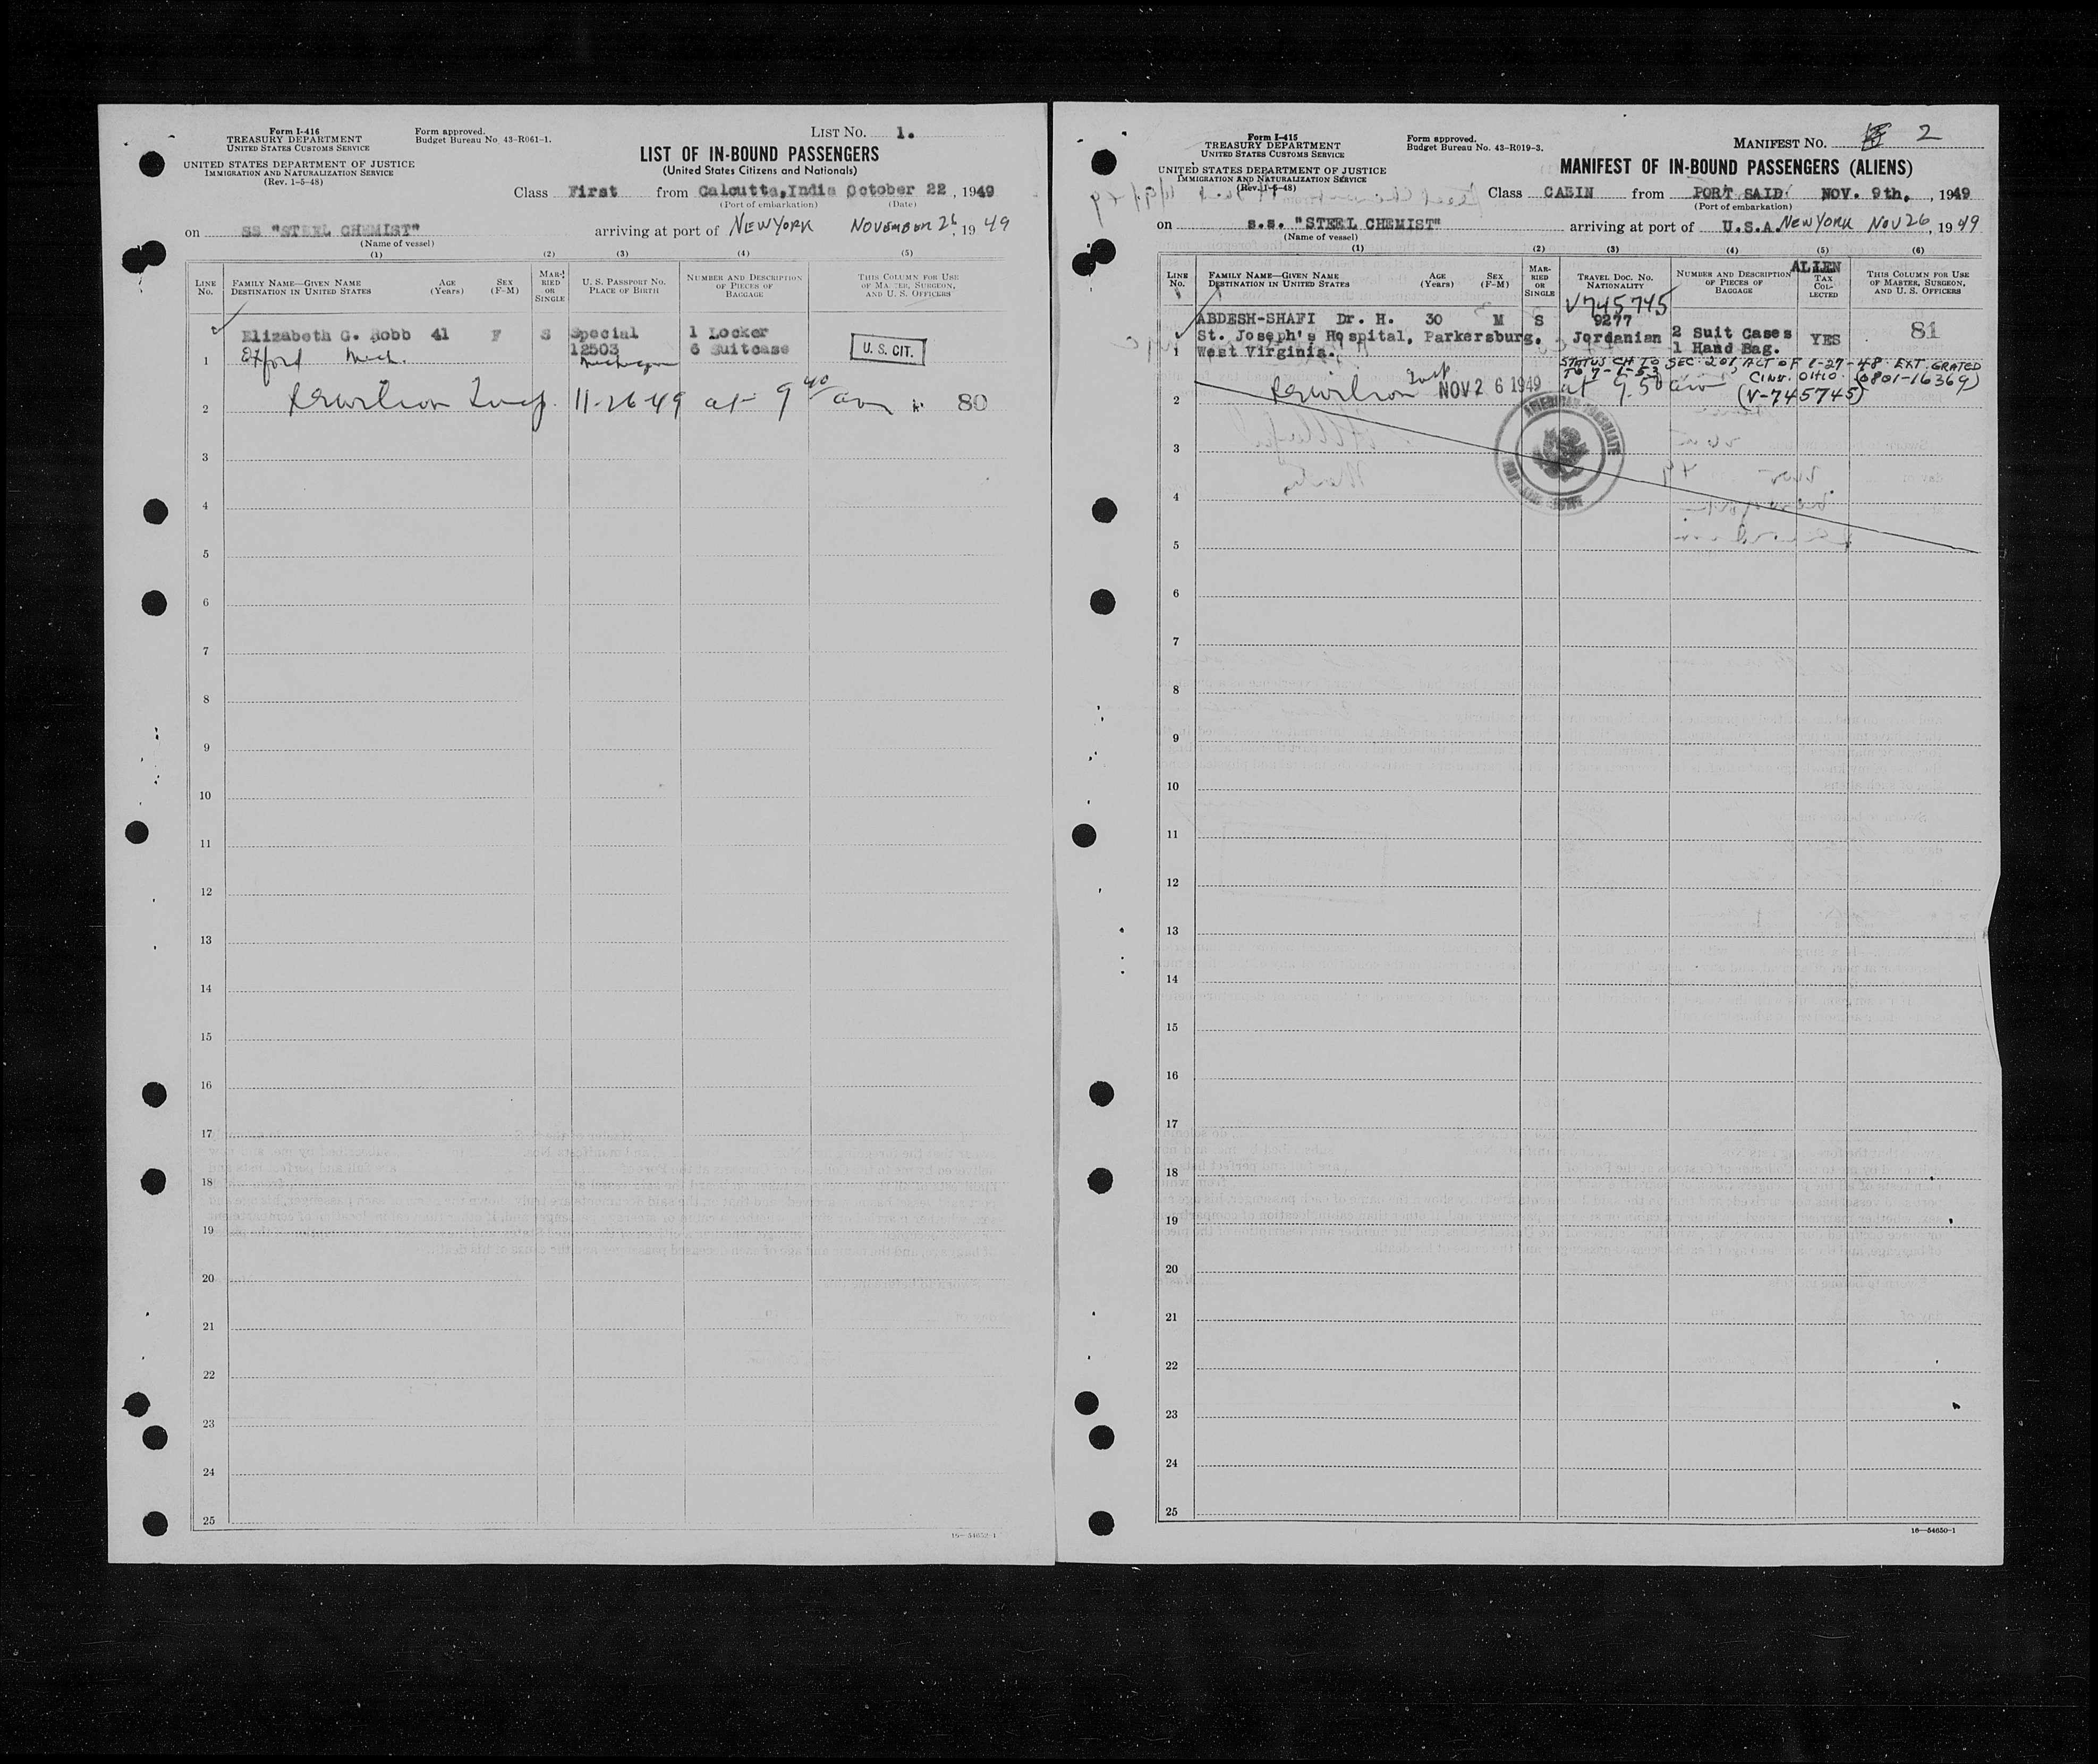 Form I-416
TREASURY DEPARTMENT
UNITED STATES CUSTOMS SERVICE
UNITED STATES DEPARTMENT OF JUSTICE
IMMIGRATION AND NATURALIZATION SERVICE
(Rev. 1-5-48)
Form approved.
Budget Bureau No. 43-R061-1.
LIST NO. 1.
LIST OF IN-BOUND PASSENGERS
(United States Citizens and Nationals)
Class First from Calcutta,India October 22, 1949
(Port of embarkation) (Date)
on SS "STEEL CHEMIST" arriving at port of NEW YORK NOVEMBER 26, 1949
(Name of vessel)
(1) (2) (3) (4) (5)
LINE No. FAMILY NAME—GIVEN NAME DESTINATION IN UNITED STATES AGE (Years) SEX (F-M) MARRIED OR SINGLE U. S. PASSPORT NO. PLACE OF BIRTH NUMBER AND DESCRIPTION OF PIECES OF BAGGAGE THIS COLUMN FOR USE OF MASTER, SURGEON, AND U. S. OFFICERS
Elizabeth G. Robb 41 F S Special 1 Locker
12503 6 Suitcase U. S. CIT.
1 Oxford Mich. Michigan
2 Insp. 11-26-49 at 9 40 am 80
3
4
5
6
7
8
9
10
11
12
13
14
15
16
17
18
19
20
21
22
23
24
25
16—54652-1
Form I-415
TREASURY DEPARTMENT
UNITED STATES CUSTOMS SERVICE
UNITED STATES DEPARTMENT OF JUSTICE
IMMIGRATION AND NATURALIZATION SERVICE
(Rev. 1-5-48)
Form approved.
Budget Bureau No. 43-R019-3.
MANIFEST NO. 2
MANIFEST OF IN-BOUND PASSENGERS (ALIENS)
Class CABIN from PORT SAID. NOV. 9th, , 1949
(Port of embarkation)
on s.s. "STEEL CHEMIST" arriving at port of U.S.A. NEW YORK NOV 26, 1949
(Name of vessel)
(1) (2) (3) (4) (5) (6)
LINE No. FAMILY NAME—GIVEN NAME DESTINATION IN UNITED STATES AGE (Years) SEX (F-M) MARRIED OR SINGLE TRAVEL DOC. NO. NATIONALITY NUMBER AND DESCRIPTION OF PIECES OF BAGGAGE ALIEN TAX COLLECTED THIS COLUMN FOR USE OF MASTER, SURGEON, AND U. S. OFFICERS
V745745
ABDESH-SHAFI Dr. H. 30 M S 9277
St. Joseph's Hospital, Parkersburg. Jordanian 2 Suit Cases YES 81
1 West Virginia. 1 Hand Bag.
STATUS CH TO SEC 201, ACT OF 1-27-48 EXT GRATED
TO 7-1-53 CINN. OHIO (0801-16369)
Insp NOV 26 1949 at 9.50 am (V-745745)
2
AMERICAN CONSULATE
3
4
5
6
7
8
9
10
11
12
13
14
15
16
17
18
19
20
21
22
23
24
25
16—54650-1